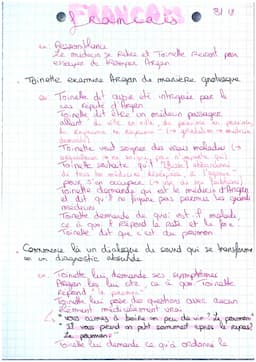 Français
3/4
Ressemblance
Le médecin se retire et Toinette revient pour
essayer de tromper Argan
Toinette examine Argan de manière grotesque
Toinette dit avoir été intriguée par le
cas réputé d'Argan
Toinette dit être un médecin passager
allant "de ville en ville, de province en province,
de royaume en royaume"
Toinette veut soigner des vrais malades
Toinette souhaite qu'il
de tous les médecins, désespéré, à l'agonie"
pour s'en occuper
Toinette demande qui est le médecin d'Argan
et dit qu'il ne figure pas parmi les grands
médecins
Toinette demande de quoi est-il malade,
ce à quoi il répond la rate et le foie.
Toinette dit que c'est du poumon
Commence là un dialogue de sourd qui se transforme
en un diagnostic absurde
Toinette lui demande ses symptômes
Argan les lui cite ce à quoi Toinette
répond "le poumon"
Toinette lui pose des questions avec aucun
élément médicalement vrai
"vous aimez à boire un peu de vin" "Le poumon"
"Il vous prend un petit sommeil après le repas"
"Le poumon"
Toinette lui demande ce qu'a ordonné le